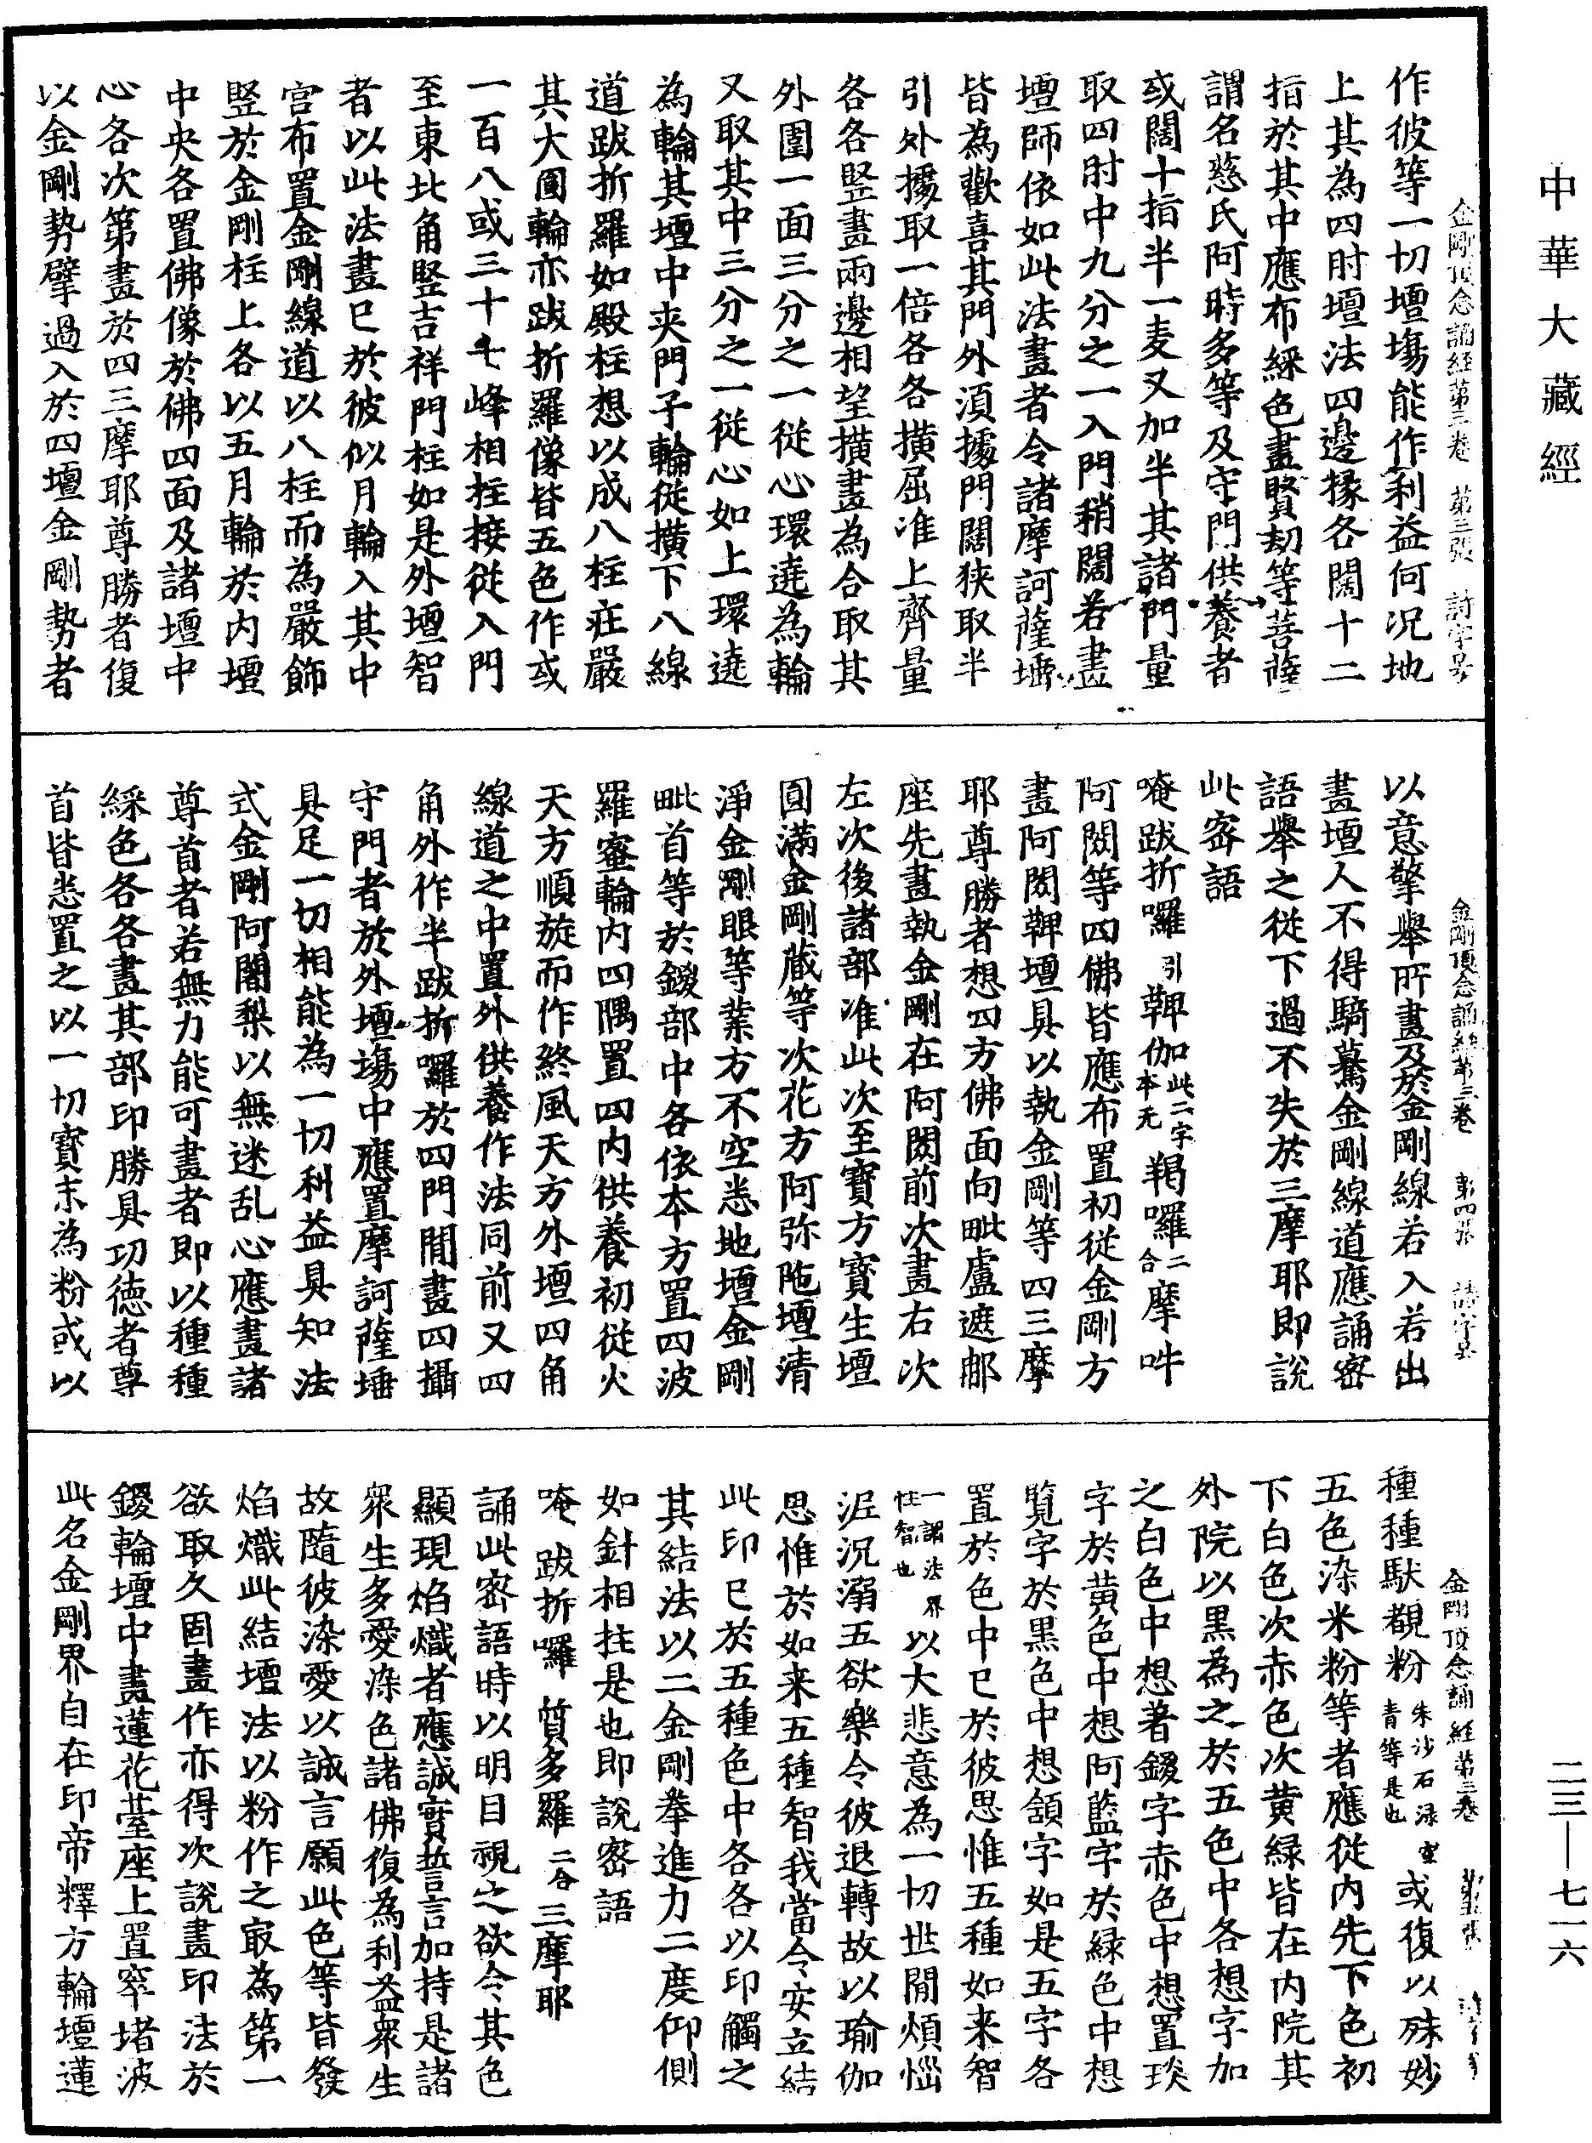 中華大藏經
金剛頂念誦經第三卷　第三張　詩字号
作彼等一切壇場能作利益何況地
上其為四肘壇法四邊掾各闊十二
指於其中應布綵色畫賢劫等菩薩
謂名慈氏阿時多等及守門供養者
或闊十指半一麦又加半其諸門量
取四肘中九分之一入門稍闊若畫
壇師依如此法畫者令諸摩訶薩埵
皆為歡喜其門外湏據門闊狹取半
引外據取一倍各各橫屈准上齊量
各各竪畫兩邊相望橫畫為合取其
外圍一面三分之一從心環遶為輪
又取其中三分之一從心如上環遶
為輪其壇中夾門子輪從橫下八線
道跋折羅如殿柱想以成八柱莊嚴
其大圓輪亦跋折羅像皆五色作或
一百八或三十七峰相拄接從入門
至東北角竪吉祥門柱如是外壇智
者以此法畫巳於彼似月輪入其中
宮布置金剛線道以八柱而為嚴飾
竪於金剛柱上各以五月輪於内壇
中央各置佛像於佛四面及諸壇中
心各次第畫於四三摩耶尊勝者復
以金剛勢擘過入於四壇金剛勢者
金剛頂念誦經第三卷　第四張　詩字号
以意擎舉所畫及於金剛線若入若出
畫壇人不得騎驀金剛線道應誦密
語舉之從下過不失於三摩耶即説
此密語
唵跋折囉引鞞伽此二字本无羯囉二合摩吽
阿閦等四佛皆應布置初從金剛方
畫阿閦鞞壇具以執金剛等四三摩
耶尊勝者想四方佛面向毗盧遮郍
座先畫執金剛在阿閦前次畫右次
左次後諸部准此次至寶方寶生壇
圓滿金剛蔵等次花方阿弥陁壇清
淨金剛眼等業方不空悉地壇金剛
毗首等於鑁部中各依本方置四波
羅蜜輪内四隅置四内供養初從火
天方順旋而作終風天方外壇四角
線道之中置外供養作法同前又四
角外作半跋折囉於四門間畫四攝
守門者於外壇場中應置摩訶薩埵
具足一切相能為一切利益具知法
式金剛阿闍梨以無迷乱心應畫諸
尊首者若無力能可畫者即以種種
綵色各各畫其部印勝具功徳者尊
首皆悉置之以一切寶末為粉或以
金剛頂念誦經第三卷
種種馱覩粉朱沙石渌空青等是也或復以殊妙
五色染米粉等者應從内先下色初
下白色次赤色次黄緑皆在内院其
外院以黒為之於五色中各想字加
之白色中想著鑁字赤色中想置琰
字於黄色中想阿藍字於緑色中想
覧字於黒色中想頷字如是五字各
置於色中巳於彼思惟五種如来智
一謂法界性智也以大悲意為一切世間煩惱
泥沉溺五欲樂令彼退轉故以瑜伽
思惟於如来五種智我當令安立結
此印巳於五種色中各各以印觸之
其結法以二金剛拳進力二度仰側
如針相拄是也即説密語
唵　跋折囉　質多羅二合三摩耶
誦此密語時以明目視之欲令其色
顯現焰熾者應誠實誓言加持是諸
衆生多愛染色諸佛復為利益衆生
故隨彼染愛以誠言願此色等皆發
焰熾此結壇法以粉作之㝡為第一
欲取久固畫作亦得次説畫印法於
鑁輪壇中畫蓮花臺座上置窣堵波
此名金剛界自在印帝釋方輪壇蓮
二三—七一六